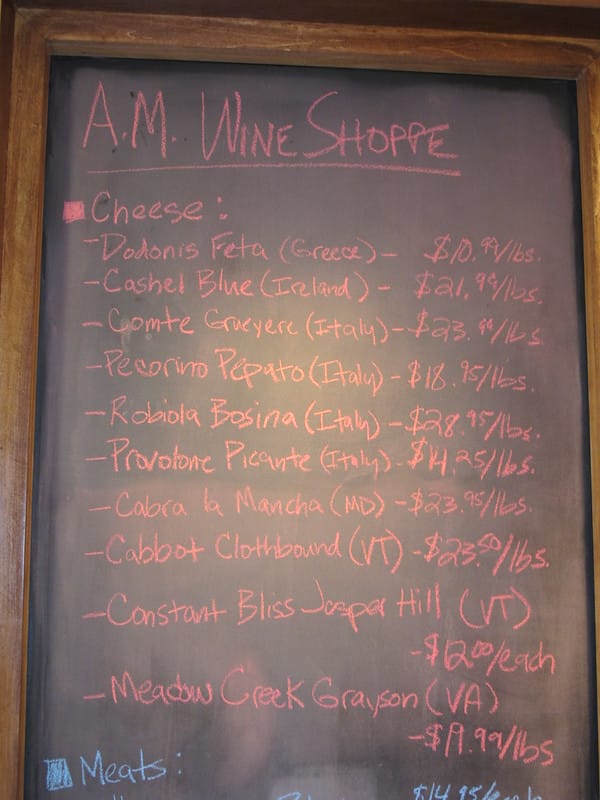 A.M. Wine Shoppe
Cheese:
- Dodonis Feta (Greece) - $10.99/lbs.
- Cashel Blue (Ireland) - $21.99/lbs.
- Comte Grueyere (Italy) - $23.99/lbs.
- Pecorino Pepato (Italy) - $18.95/lbs.
- Robiola Bosina (Italy) - $28.95/lbs.
- Provolone Picante (Italy) - $14.25/lbs.
- Cabra la Mancha (MD) - $23.95/lbs.
- Cabbot Clothbound (VT) - $23.50/lbs.
- Constant Bliss Jasper Hill (VT)
- $12.00/each
- Meadow Creek Grayson (VA)
- $19.99/lbs
Meats:
$14.95/